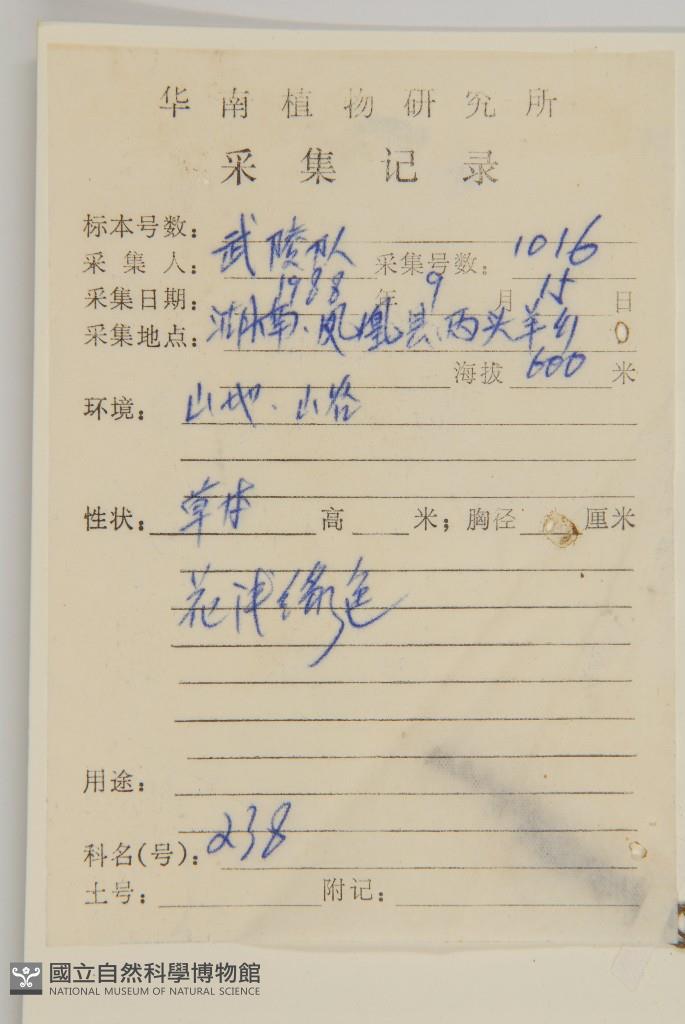 华南植物研究所
采集记录
标本号数：
采集人：武陵队 采集号数：1016
采集日期：1988年9月15日
采集地点：湖南、凤凰县、两头羊乡
海拔600米
环境：山地、山谷
性状：草本 高 米；胸径 厘米
花浅绿色
用途：
科名(号)：238
土号： 附记：
國立自然科學博物館
NATIONAL MUSEUM OF NATURAL SCIENCE